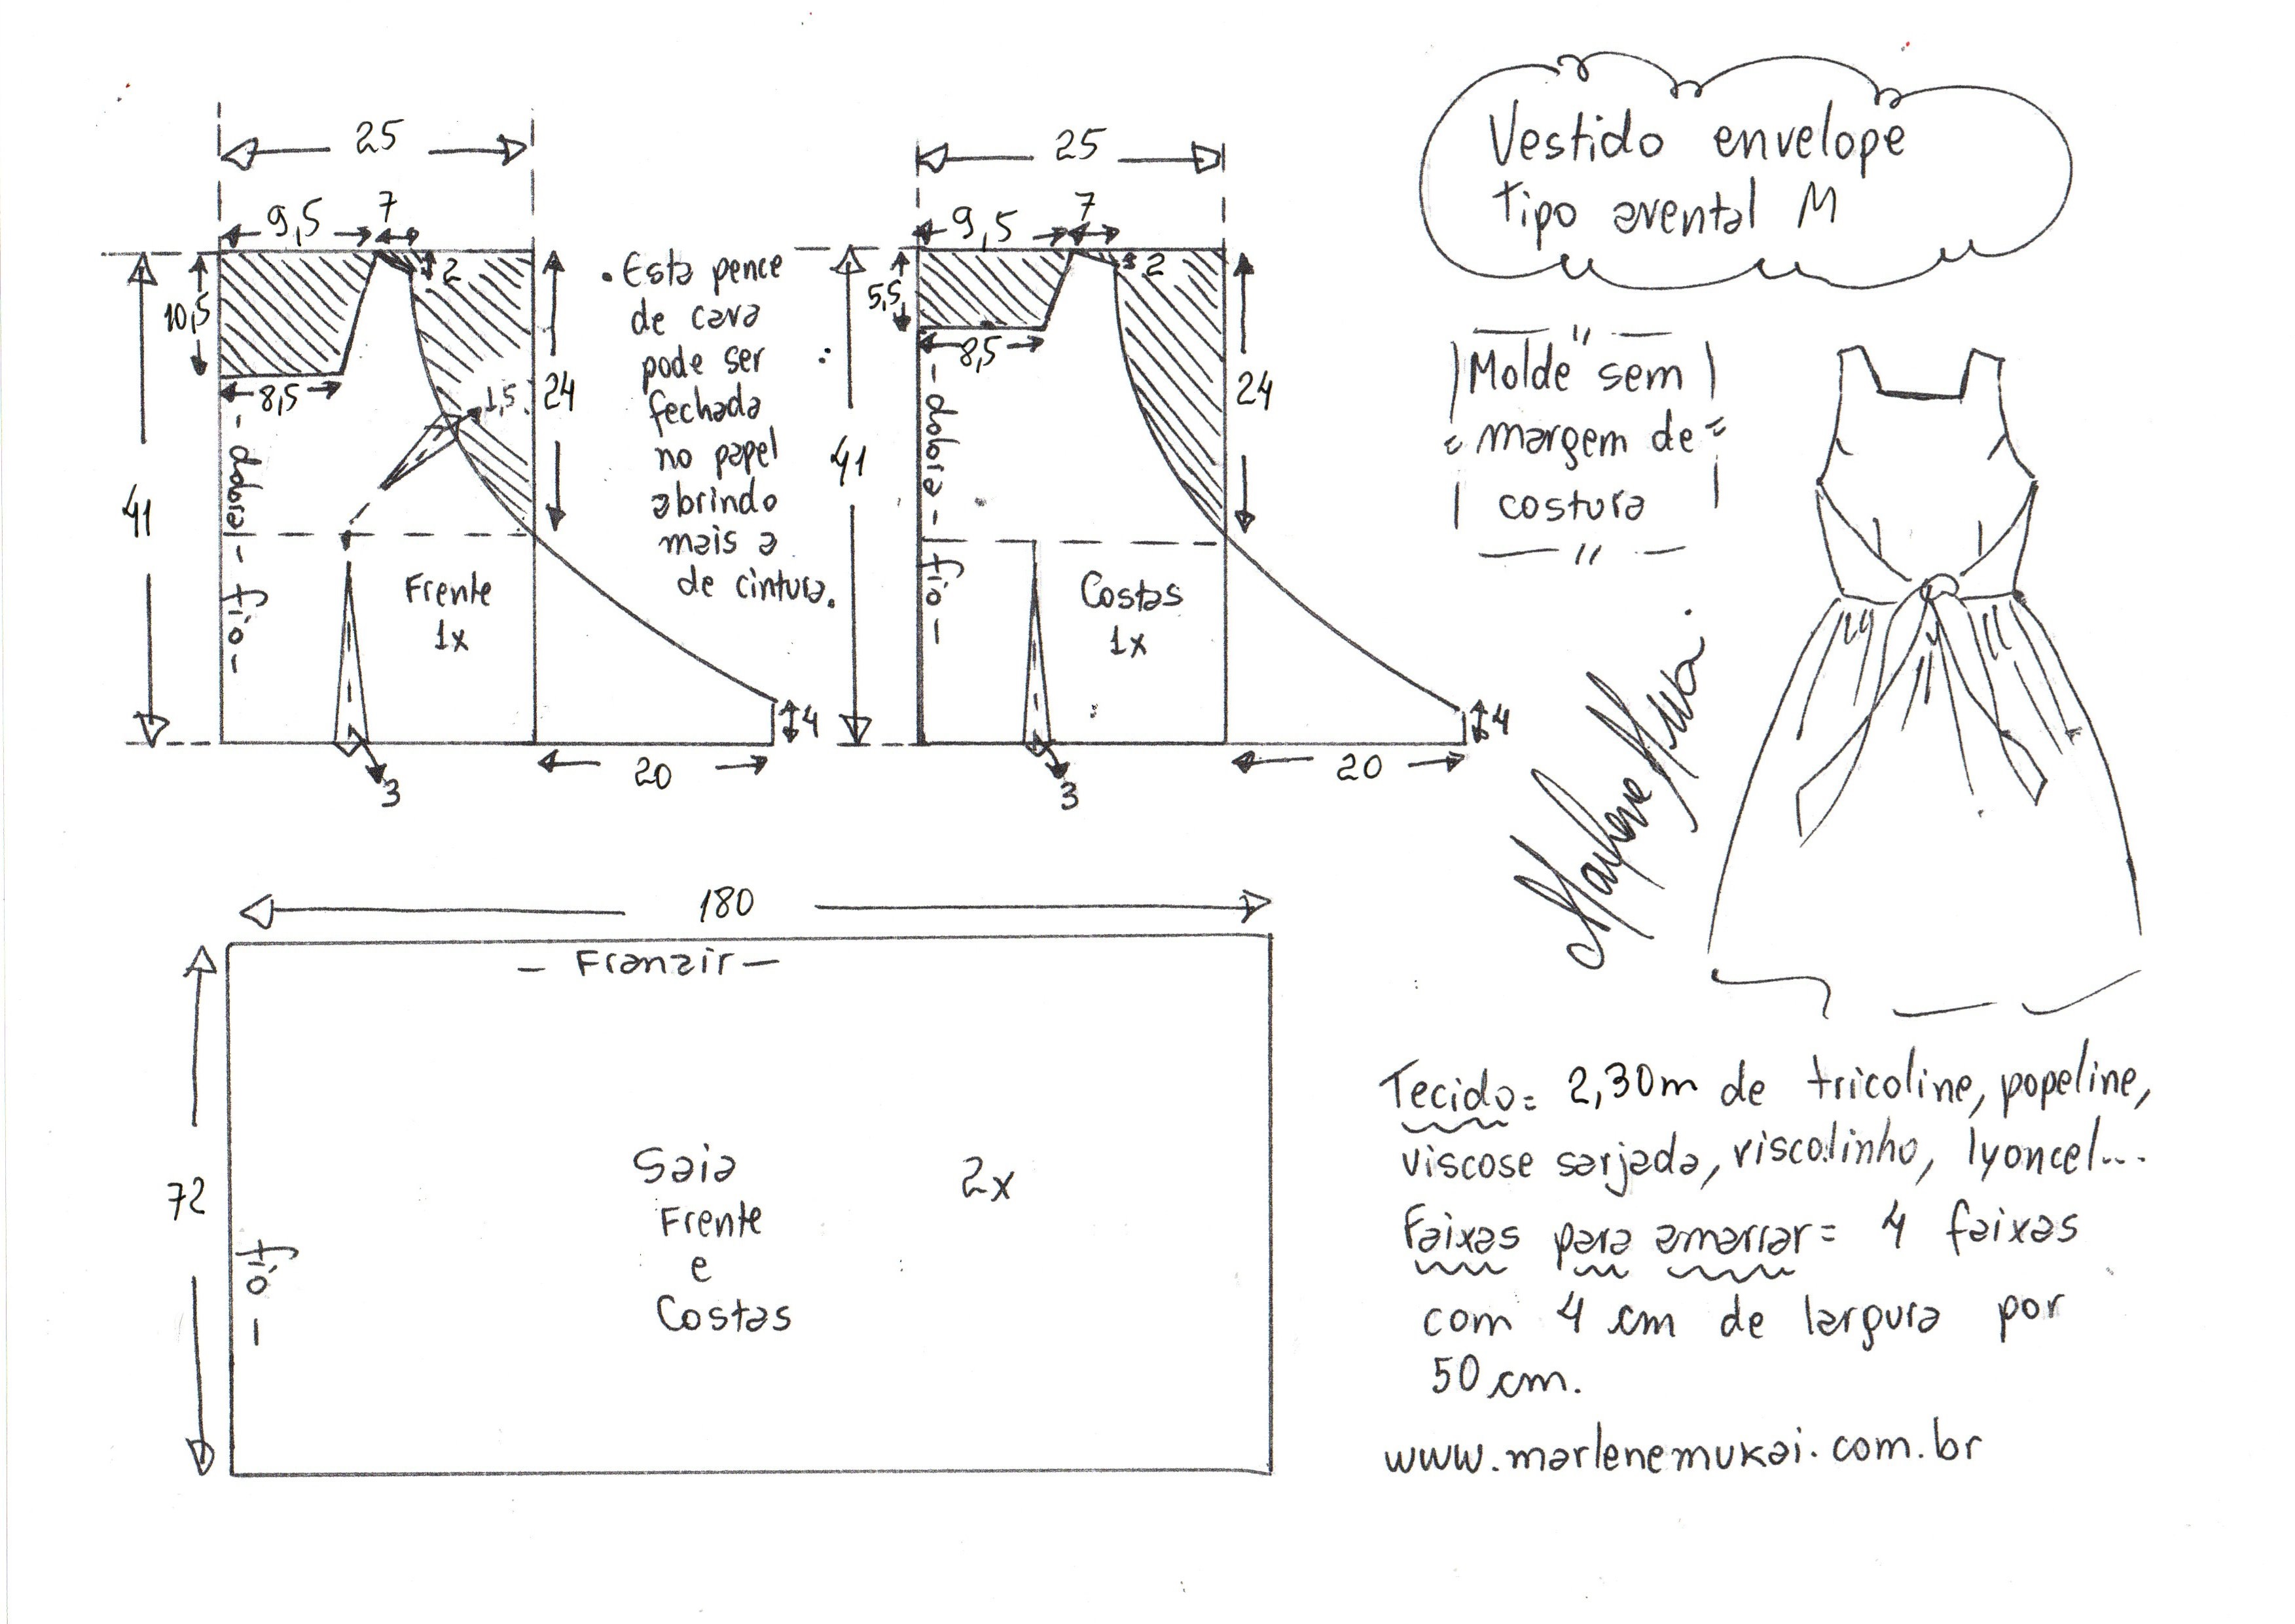 Vestido envelope
Tipo avental M
25
9,5
7
2
10,5
8,5
1,5
24
41
- dobra - fio -
Frente
1x
3
20
4
. Esta pence
de cava
pode ser
fechada
no papel
abrindo
mais a
de cintura.
25
9,5
7
2
5,5
8,5
24
41
- dobra - fio -
Costas
1x
3
20
4
Molde sem
margem de
costura
180
- Franzir -
72
fio -
Saia
Frente
e
Costas
2x
Tecido= 2,30m de tricoline, popeline,
viscose sarjada, viscolinho, lyoncel...
Faixas para amarrar= 4 faixas
com 4 cm de largura por
50 cm.
www.marlenemukai.com.br